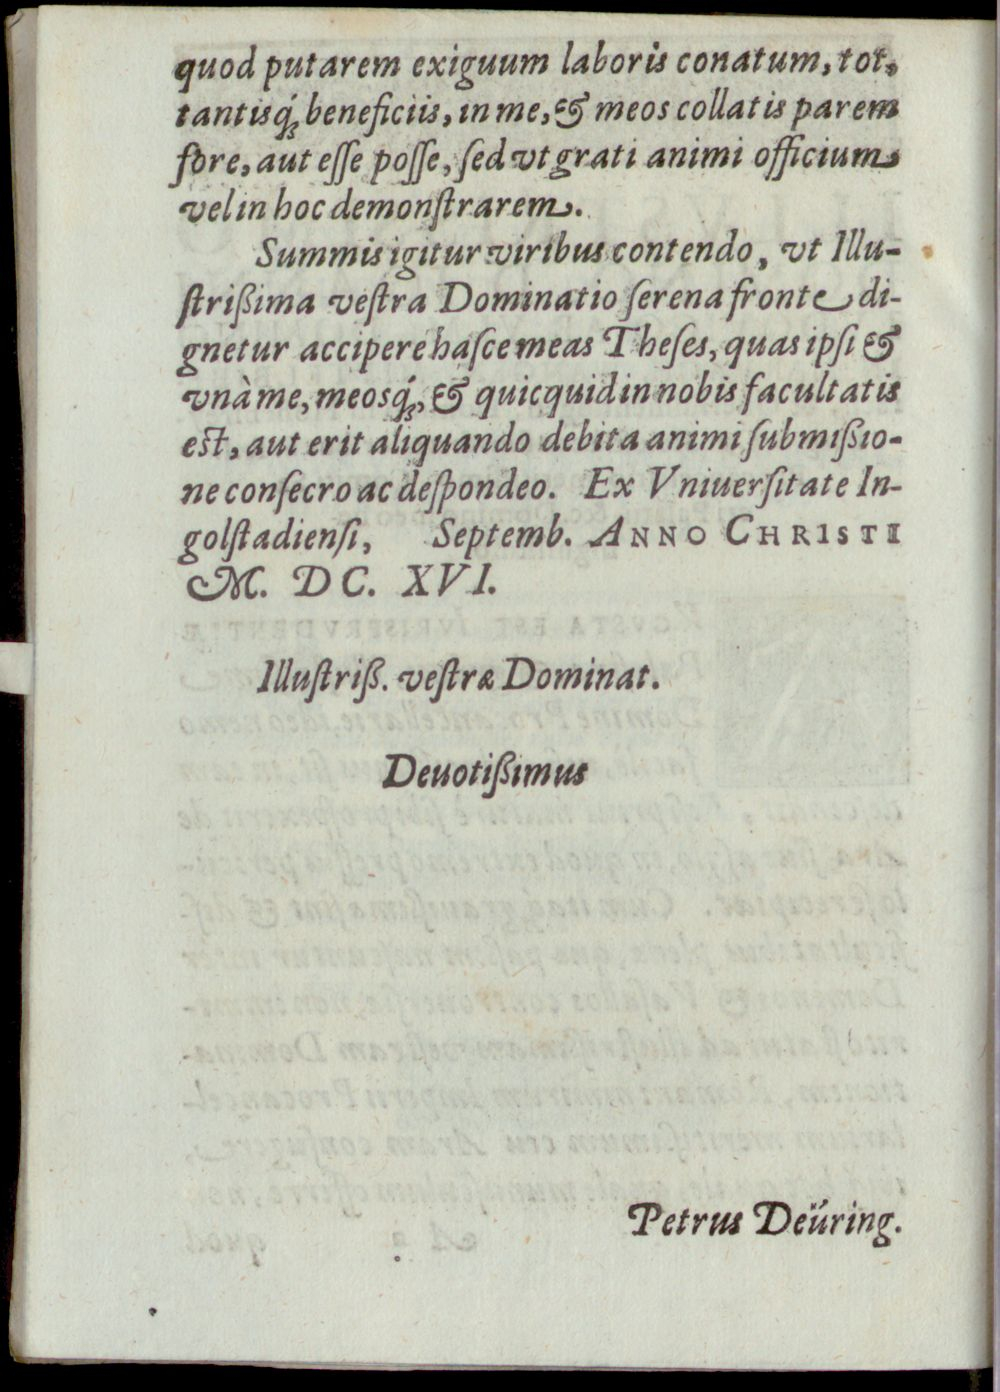 quod putarem exiguum laboris conatum, tot,
tantisq́; beneficiis, in me, & meos collatis parem
fore, aut eſſe poſſe, ſed vt grati animi officium
vel in hoc demonſtrarem.
Summis igitur viribus contendo, vt Illu-
ſtrißima veſtra Dominatio ſerena fronte di-
gnetur accipere haſce meas Theſes, quas ipſi &
vnà me, meosq́;, & quicquid in nobis facultatis
est, aut erit aliquando debita animi ſubmißio-
ne conſecro ac deſpondeo. Ex Vniuerſitate In-
golſtadienſi, Septemb. ANNO CHRISTI
M. DC. XVI.
Illuſtriß. veſtræ Dominat.
Deuotißimus
Petrus Deüring.